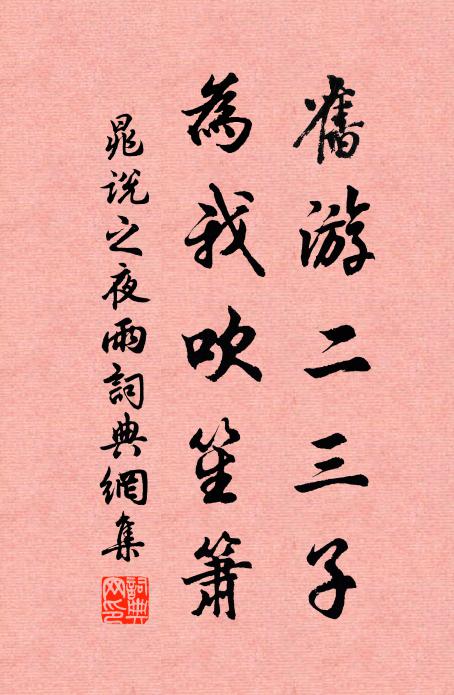 舊游二三子
為我吹笙簫
晁說之夜雨詞典網集
詞典網印